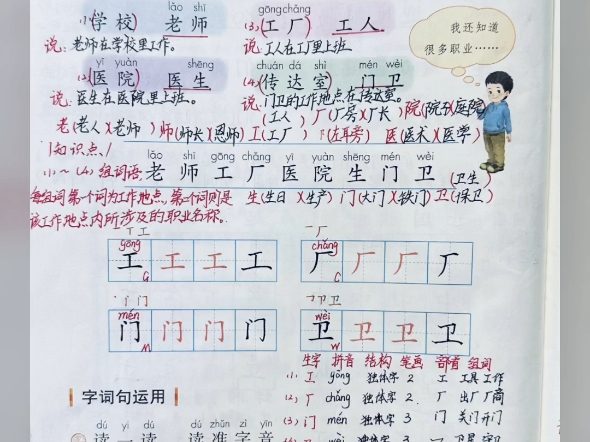 lǎo shī gōng chǎng
(1)(学校) 老师 (3)(工厂) 工人
说:老师在学校里工作。 说:工人在工厂里上班。
我还知道
很多职业……
yī yuàn shēng chuán dá shì mén wèi
(2)(医院) 医生 (4)(传达室) 门卫
说:医生在医院里上班。 说:门卫的工作地点在传达室。
老(老人)(老师) 师(师长)(恩师) 工(工厂)(工人) 厂(厂房)(厂长) 院(院子)(庭院)
(左耳旁) 医(医术)(医学)
知识点
lǎo shī gōng chǎng yī yuàn shēng mén wèi
(1)~(4)组词语, 老 师 工 厂 医 院 生 门 卫 (卫生)
每组词第一个词为工作地点,第二个词则是 生(生日)(生产) 门(大门)(铁门) 卫(保卫)
该工作地点内所涉及的职业名称。
gōng 工 工 工 工 G
chǎng 厂 厂 厂 厂 C
mén 门 门 门 门 M
wèi 卫 卫 卫 卫 W
生字 拼音 结构 笔画 部首 组词
(1) 工 gōng 独体字 2 工 工具 工作
(2) 厂 chǎng 独体字 2 厂 出厂 厂商
(3) 门 mén 独体字 3 门 关门 开门
字词句运用
dú yi dú dú zhǔn zì yīn
读一读 读准字音